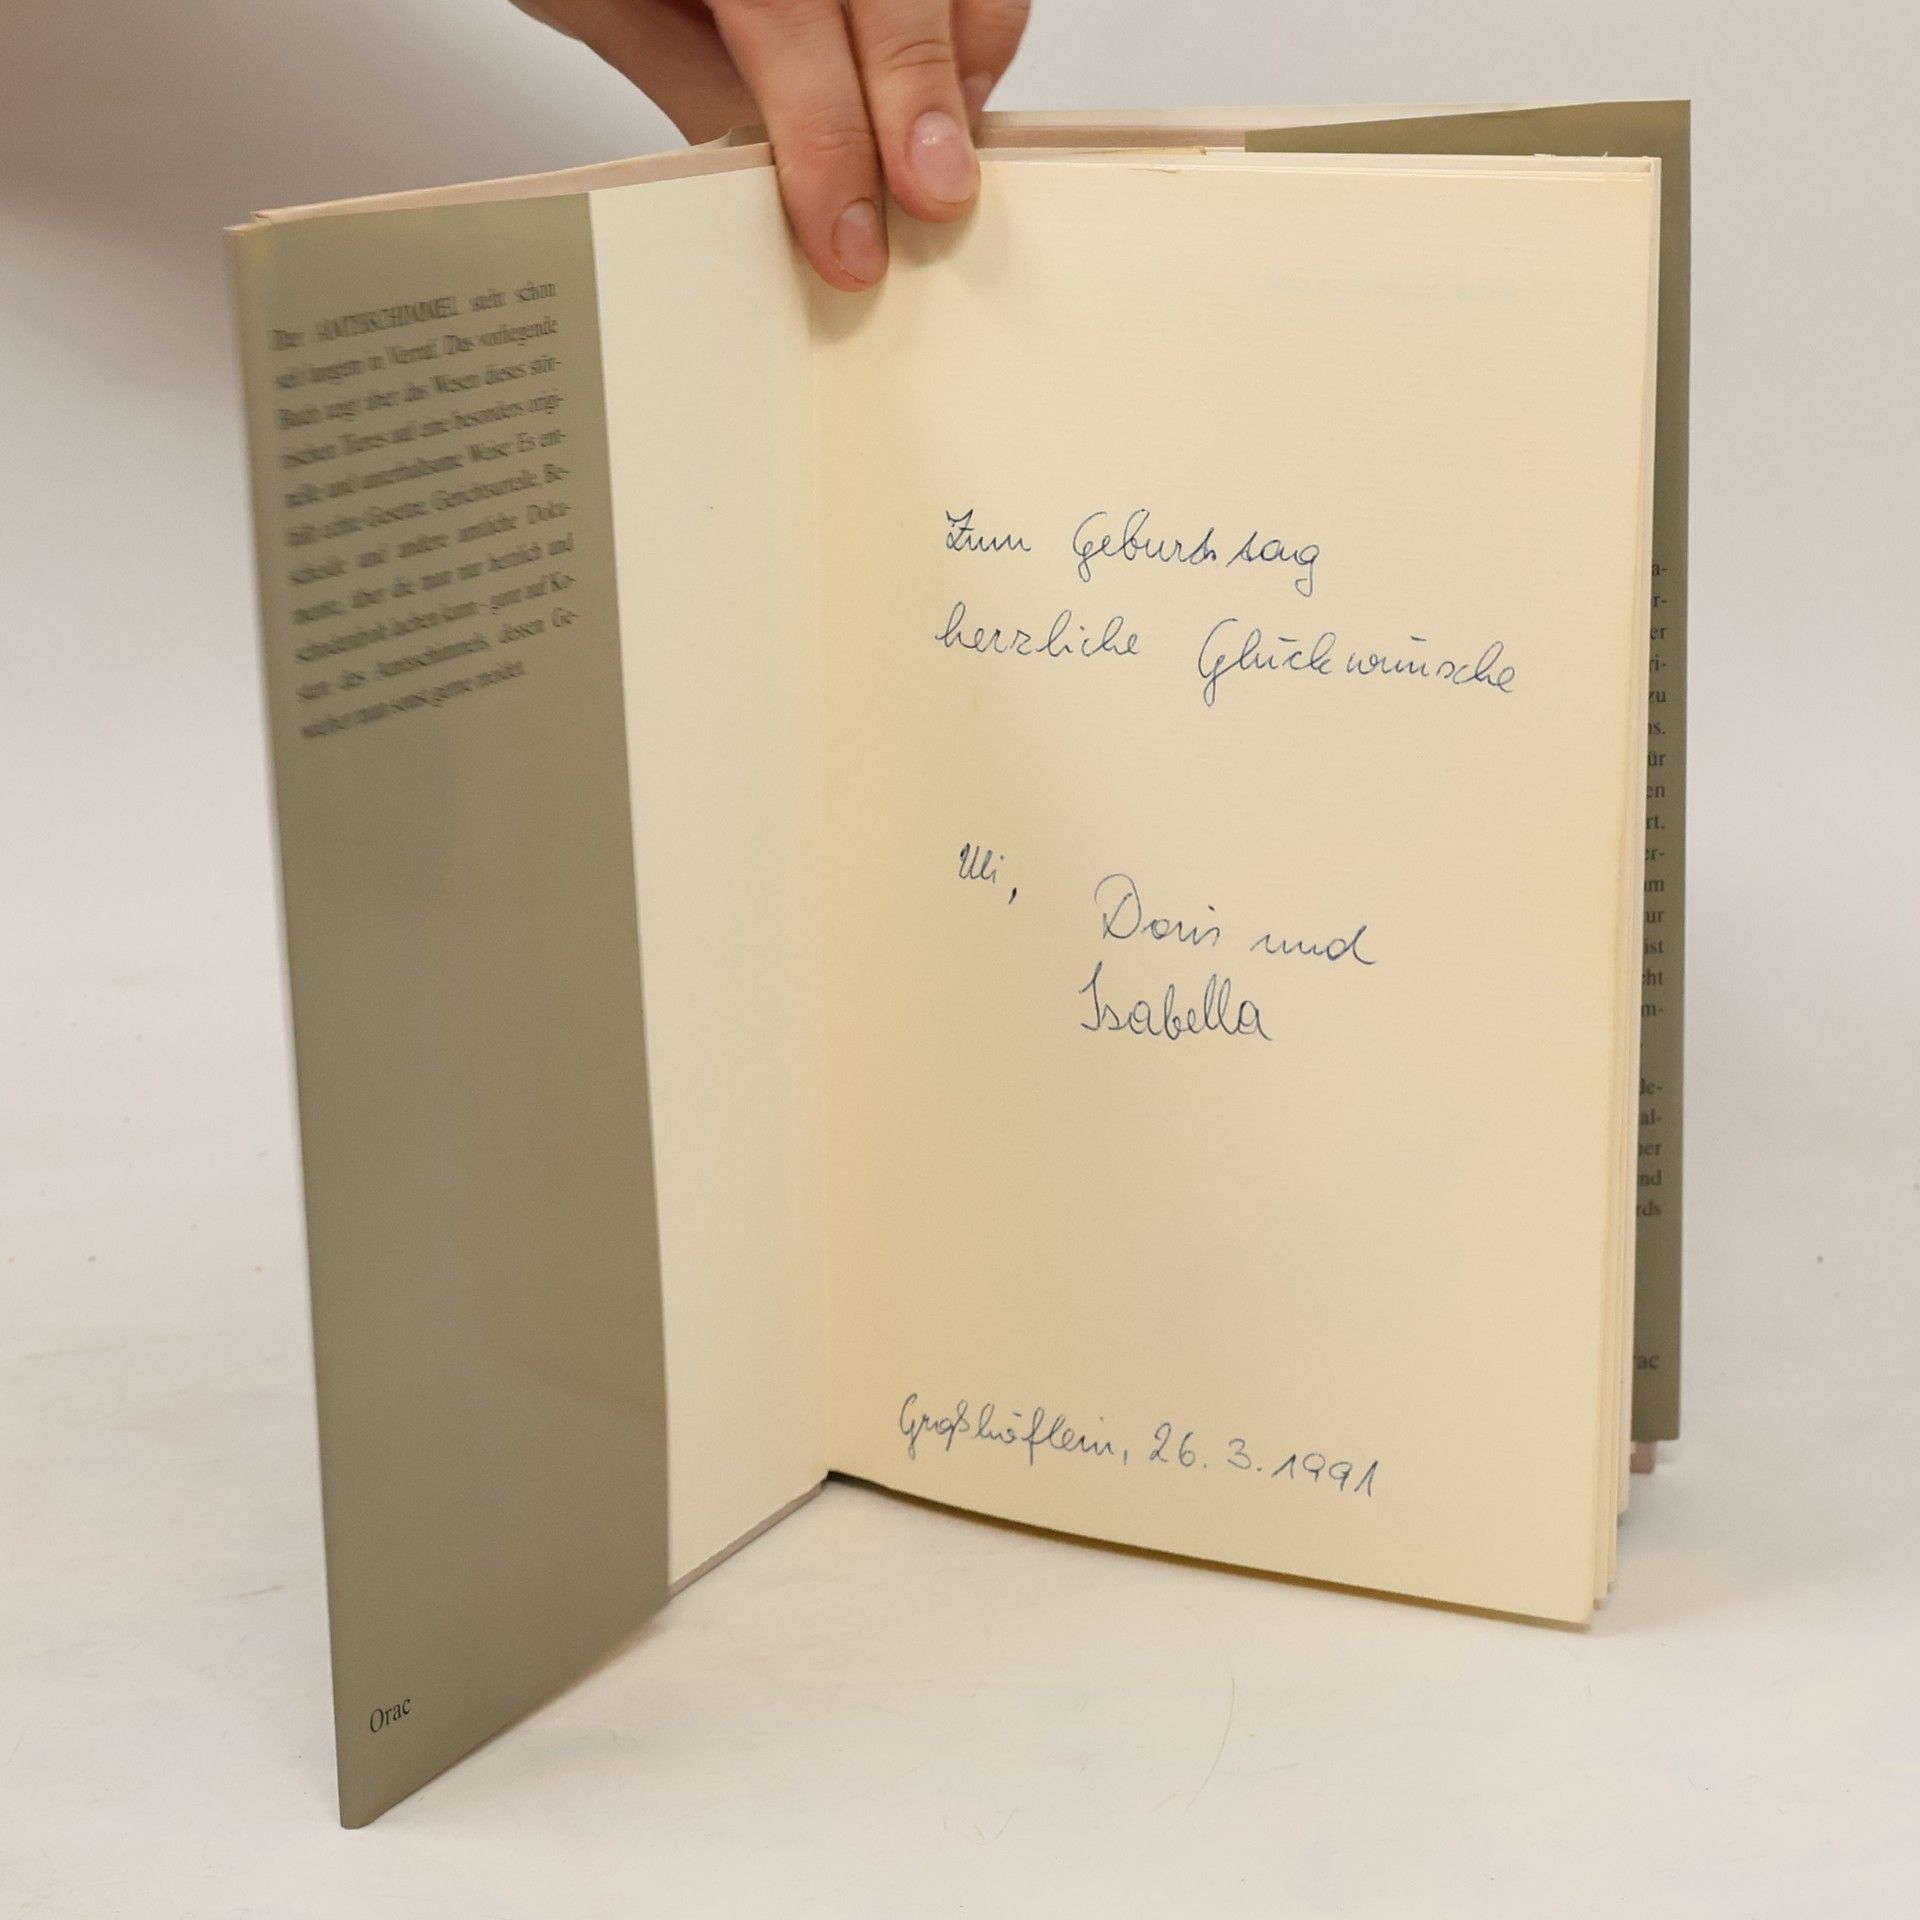 Der AMTSSCHIMMEL steht schon
seit langem in Verruf. Das vorliegende
Buch zeigt aber das Wesen dieses stör-
rischen Tieres auf eine besonders origi-
nelle und unterhaltsame Weise: Es ent-
hält echte Gesetze, Gerichtsurteile, Be-
scheide und andere amtliche Doku-
mente, über die man nur herzlich und
lachen kann - ganz auf Ko-
sten des Amtsschimmels, dessen Ge-
man sonst gerne meidet.
Orac
Zum Geburtstag
herzliche Glückwünsche
Uli,
Doris und
Isabella
Großhöflein, 26. 3. 1991
a-
r-
er
ri-
zu
ns.
ür
en
rt.
er-
am
ur
ist
cht
m-
de-
al-
ber
nd
rds
rac